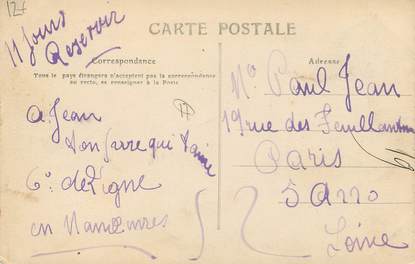 124
11 jours
Reservoir
CARTE POSTALE
Correspondance
Tous les pays étrangers n'acceptent pas la correspondance
au recto, se renseigner à la Poste
Adresse
A Jean
ton frère qui t'aime
6e de Ligne
en Manœuvres
Mr Paul Jean
19 rue des Feuillantines
Paris
5 Arro